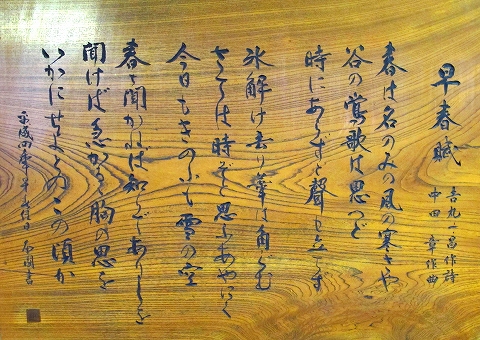 早春賦
吉丸一昌 作詩
中田 章 作曲
春は名のみの風の寒さや
谷の鶯歌は思へど
時にあらずと聲も立てず
氷解け去り葦は角ぐむ
さては時ぞと思ふあやにく
今日もきのふも雪の空
春と聞かねば知らでありしを
聞けば急かるる胸の思を
いかにせよとのこの頃か
平成四年